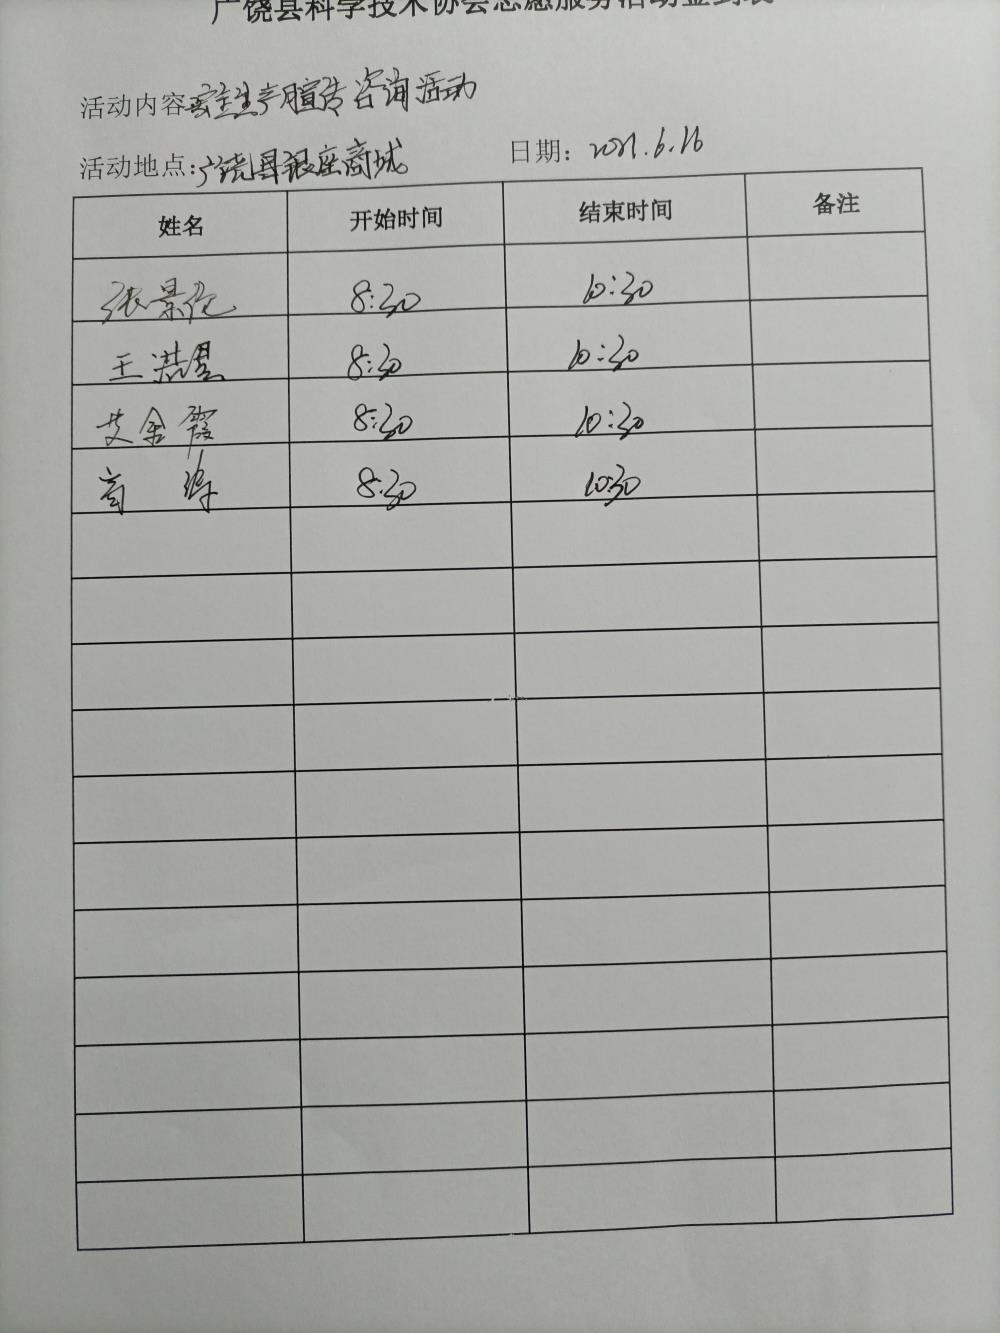 广饶县科学技术协会志愿服务活动签到表
活动内容:安全生产月宣传咨询活动
活动地点:广饶县银座商城
日期:2021.6.16
姓名 开始时间 结束时间 备注
张景伦 8:30 10:30
王洪星 8:30 10:30
艾金霞 8:30 10:30
高 8:30 10:30